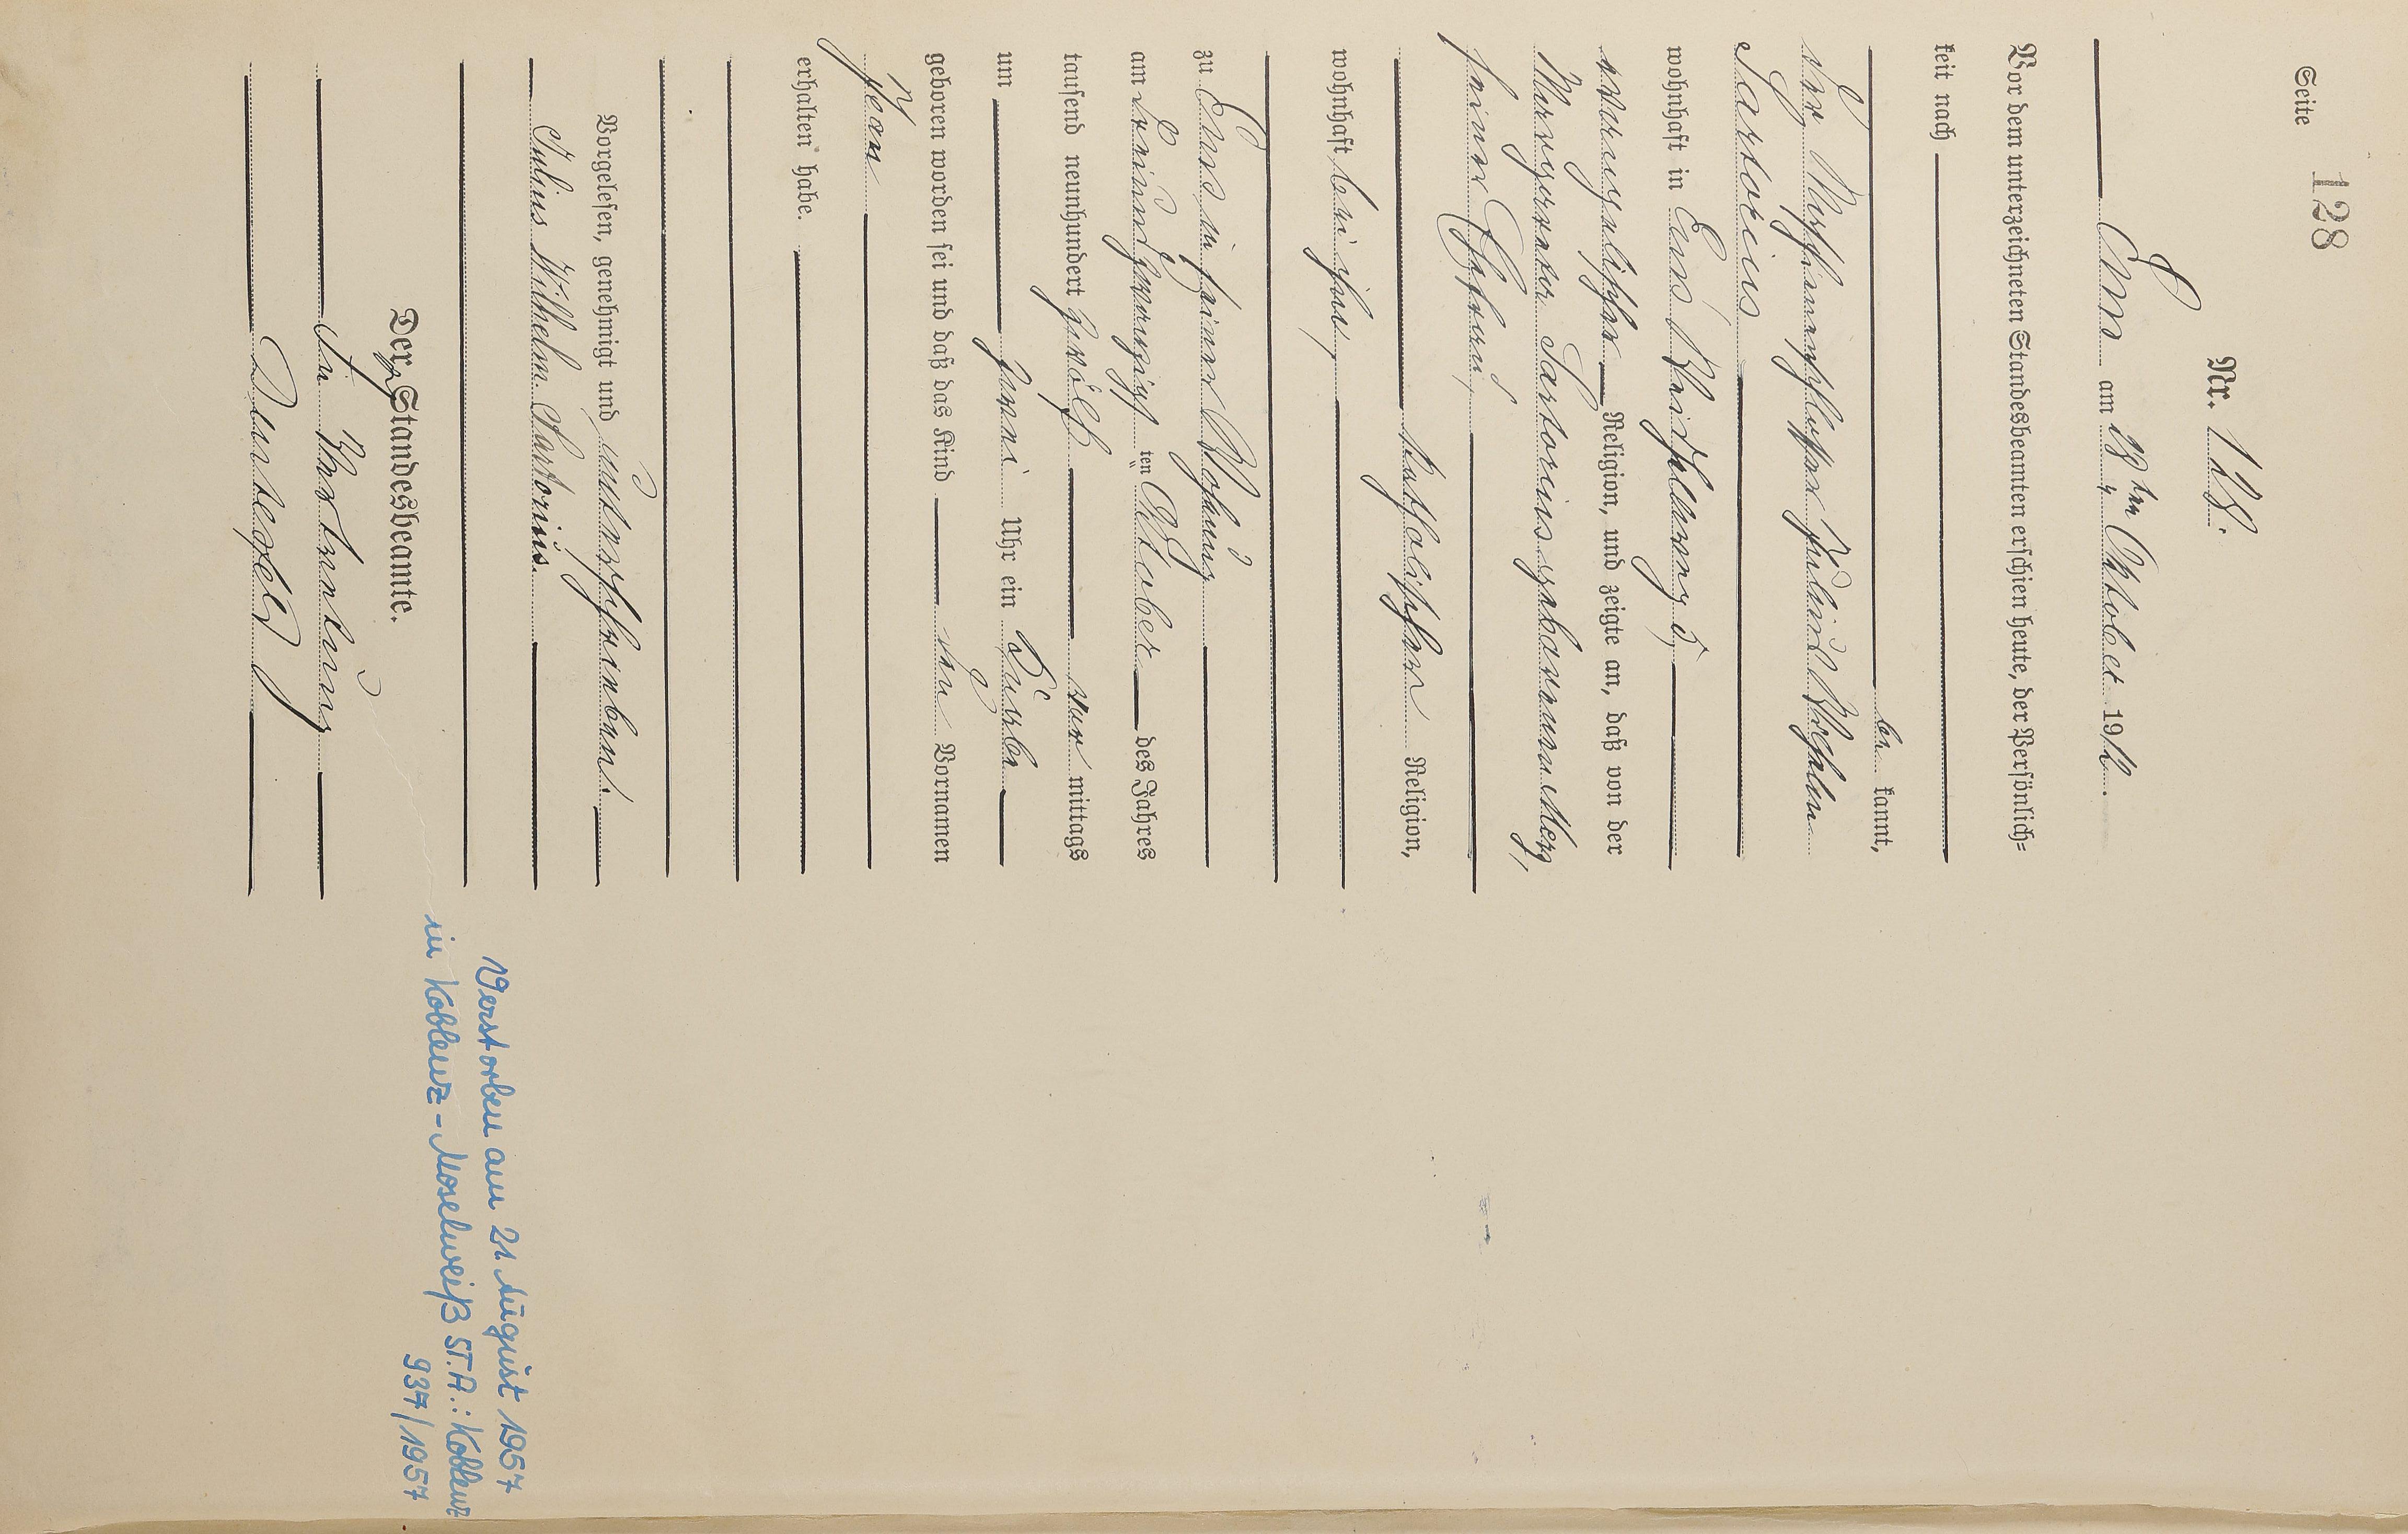 Seite 128
Nr. 128.
Ems am 28ten Oktober 1912.
Vor dem unterzeichneten Standesbeamten erschien heute, der Persönlich=
keit nach
be kannt,
der Maschinenschlosser Julius Wilhelm
Sartorius
wohnhaft in Ems,
evangelischer Religion, und zeigte an, daß von der
Margareta Sartorius gebornenen Merz,
seiner Ehefrau,
katholischer Religion,
wohnhaft bei ihm,
zu Ems in seiner Wohnung
am dreiundzwanzigsten Oktober des Jahres
tausend neunhundert zwölf vor mittags
um zwei Uhr ein Knabe
geboren worden sei und daß das Kind den Vornamen
Jean
erhalten habe.
Vorgelesen, genehmigt und unterschrieben.
Julius Wilhelm Sartorius.
Der Standesbeamte.
In Vertretung
Verstorben am 21. August 1957
in Koblenz-Moselweiß ST.A.: Koblenz
937/1957